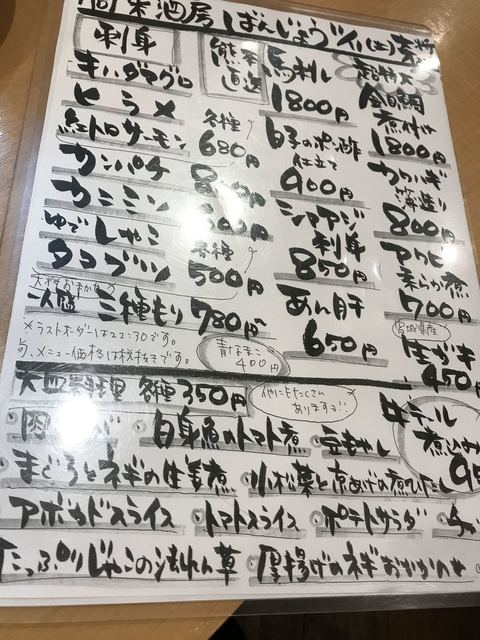 酒房 ばんじょう
刺身
熊本直送 馬刺し 1800円
キハダマグロ
ヒラメ 各種 680円
紅トロサーモン
カンパチ
カニミソ
ゆでしゃこ 各種 500円
タコブツ
三種もり 780円
白子のポン酢仕立て 900円
シマアジ刺身 850円
あん肝 650円
超特大 金目鯛煮付け 1800円
カワハギ薄造り 800円
アワビ柔らか煮 700円
宮城県産 生ガキ 450円
※ラストオーダーは22:30です。
メニュー価格は税抜きです。
青なまこ 400円
大皿料理 各種 350円
他にもたくさんあります!!
白身魚のトマト煮
豆もやし
まぐろとネギの生姜煮
小松菜と京あげの煮びたし
アボカドスライス
トマトスライス
ポテトサラダ
たっぷりじゃこの法れん草
厚揚げのネギおかかのせ